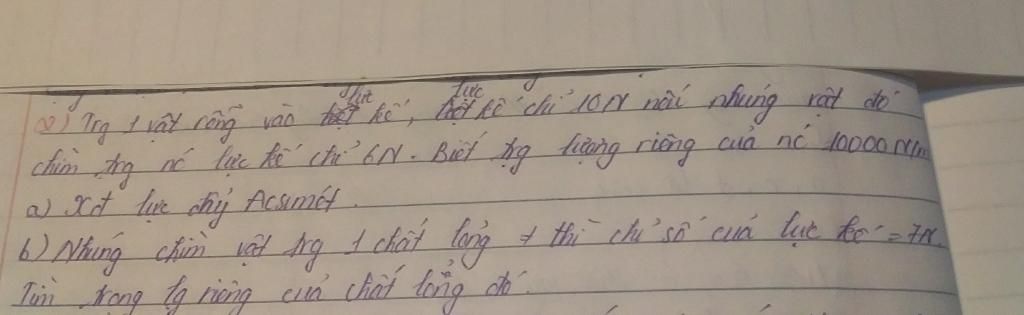 2) Trg 1 vật rỗng vào lực kế, lực kế chỉ 10N nếú nhúng vật đó
chìm trg nc lực kế chỉ 6N. Biết trg lượng riêng của nc 10000 N/m
a) Xđ lực đẩy Acsimét.
b) Nhúng chìm vật trg 1 chất lỏng ≠ thì chỉ số của lực kế = 7N.
Tìm trong lg riêng của chất lỏng đó.